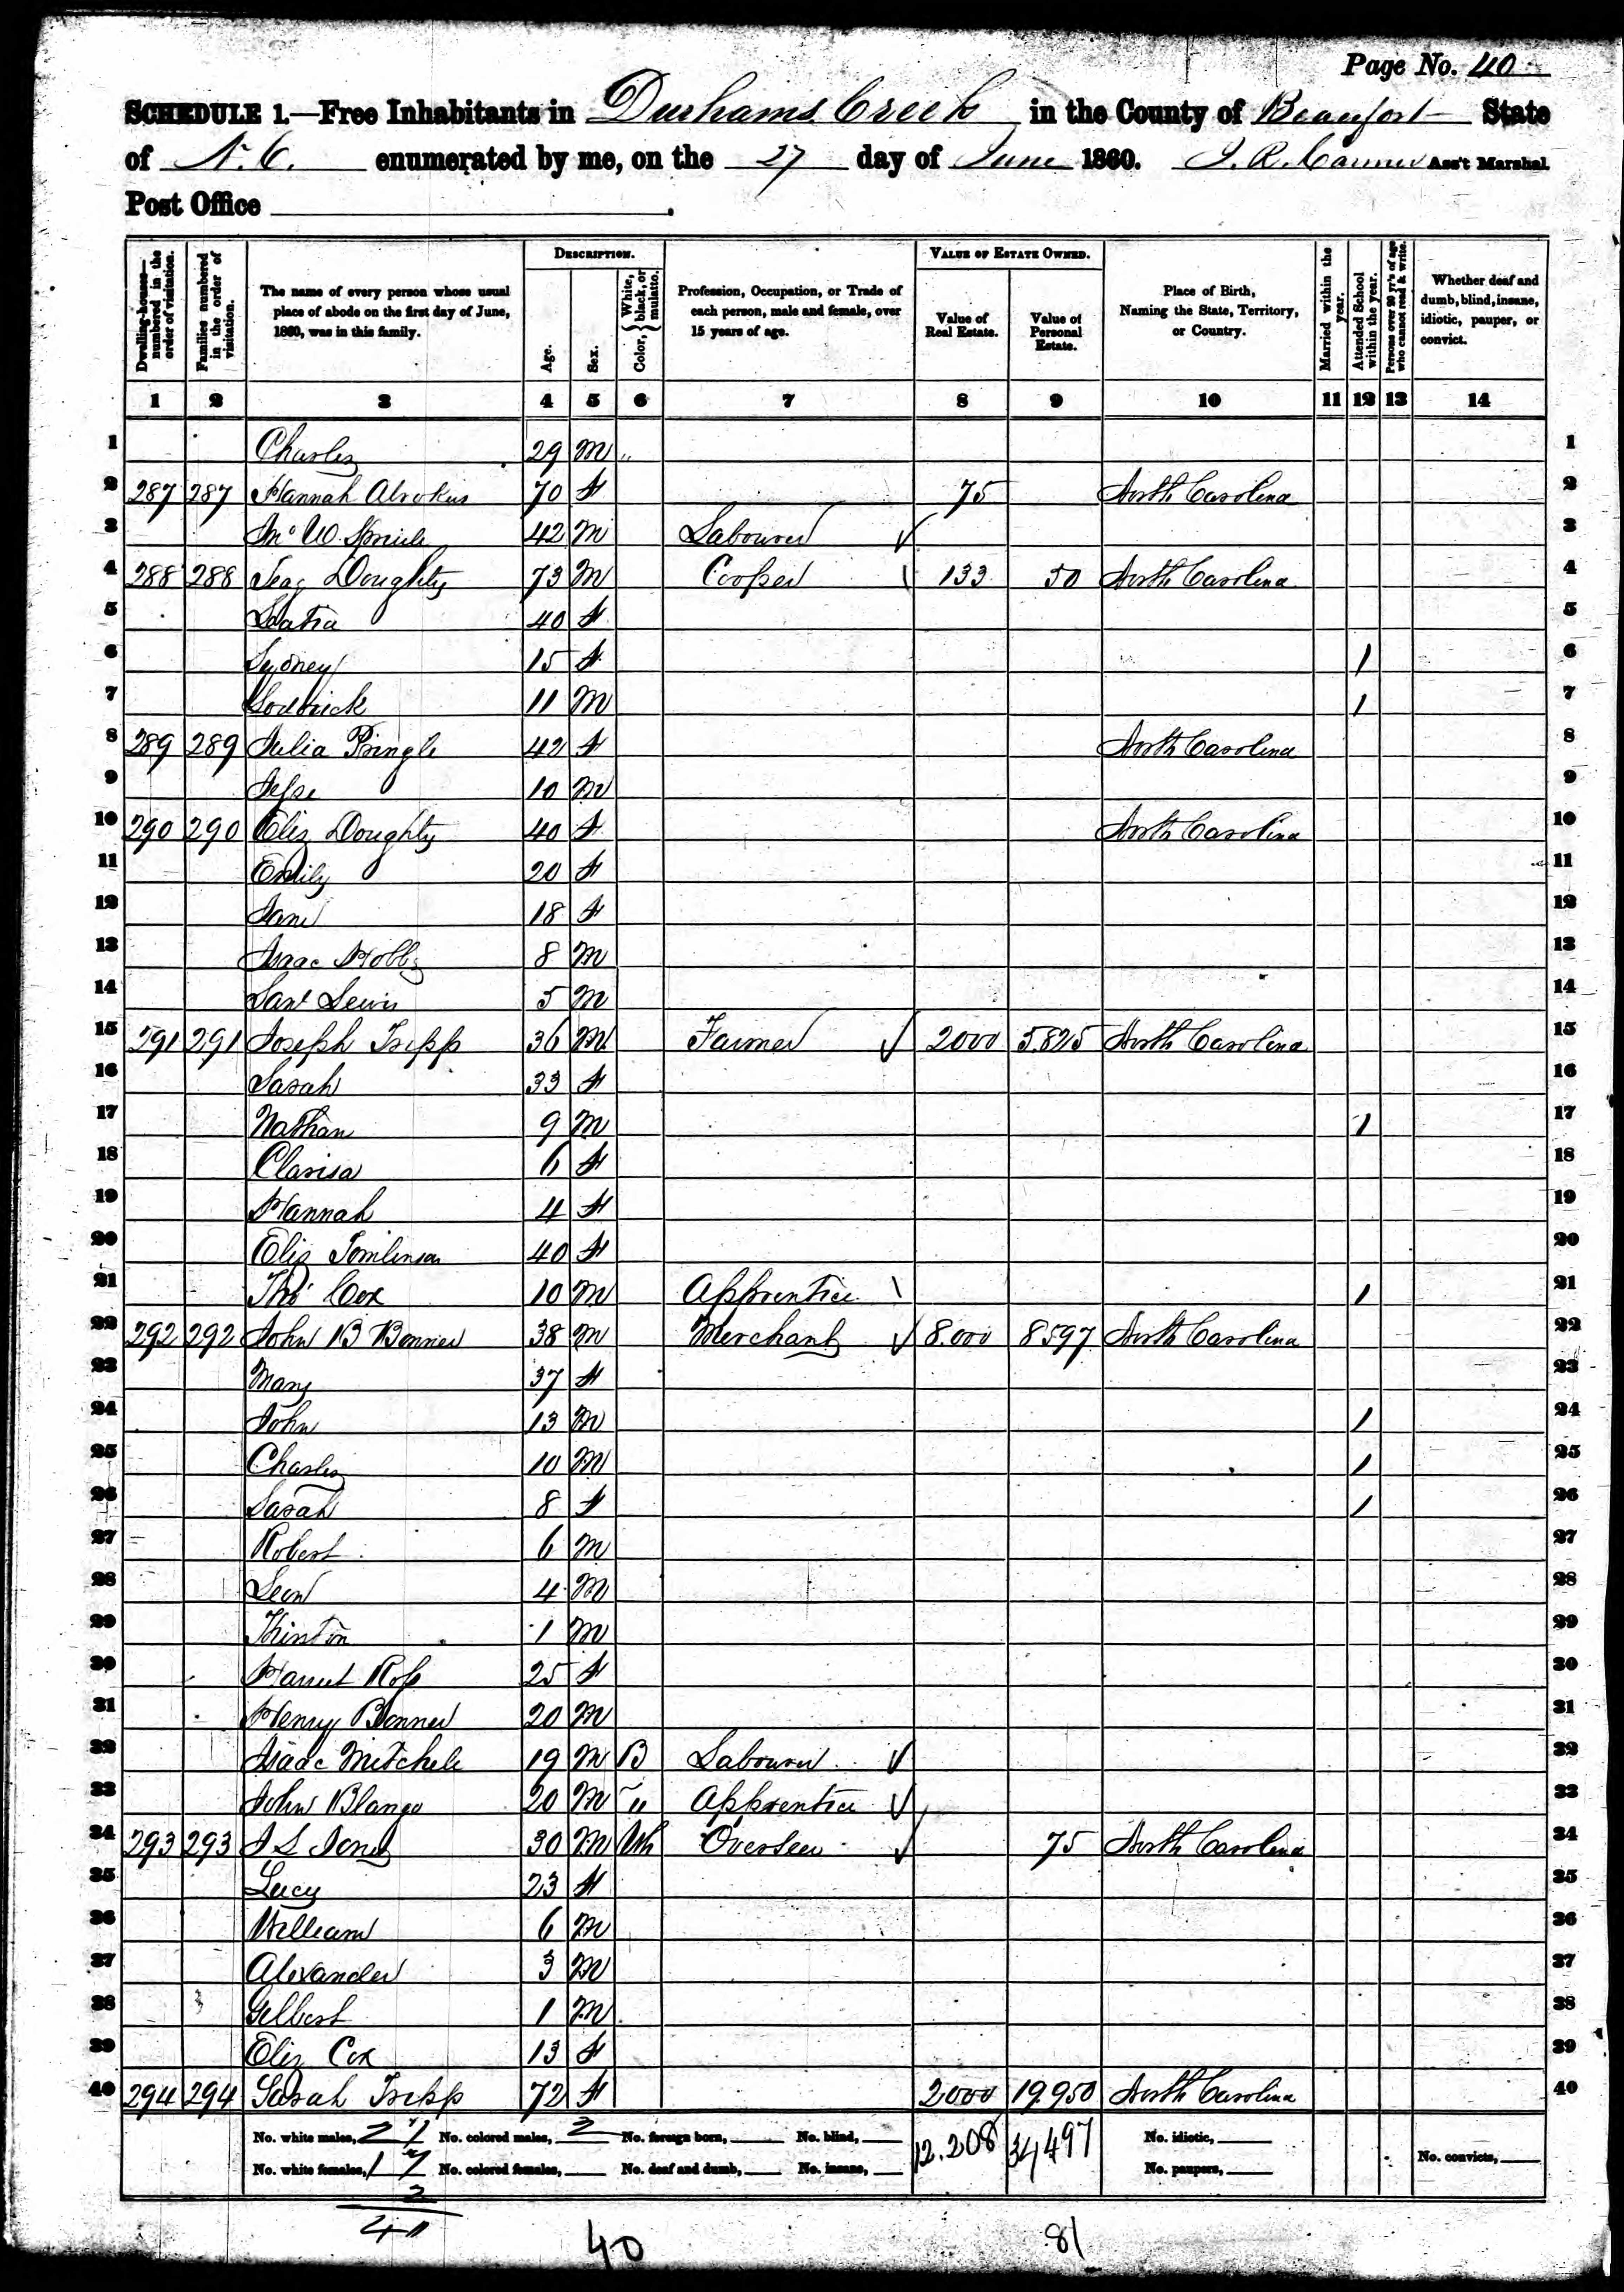 Page No. 40
SCHEDULE 1.—Free Inhabitants in Durhams Creek in the County of Beaufort State
of N.C. enumerated by me, on the 27 day of June 1860. Ass't Marshal.
Post Office
Dwelling-houses—numbered in the order of visitation.
Families numbered in the order of visitation.
The name of every person whose usual place of abode on the first day of June, 1860, was in this family.
DESCRIPTION.
Age.
Sex.
Color, { White, black, or mulatto.
Profession, Occupation, or Trade of each person, male and female, over 15 years of age.
VALUE OF ESTATE OWNED.
Value of Real Estate.
Value of Personal Estate.
Place of Birth, Naming the State, Territory, or Country.
Married within the year.
Attended School within the year.
Persons over 20 yr's of age who cannot read & write.
Whether deaf and dumb, blind, insane, idiotic, pauper, or convict.
1 2 3 4 5 6 7 8 9 10 11 12 13 14
1 Charles 29 M " 1
2 287 287 Hannah 70 f 75 North Carolina 2
3 42 M Labourer 3
4 288 288 Doughty 73 M Cooper 133 50 North Carolina 4
5 40 f 5
6 Sydney 15 f 1 6
7 11 M 1 7
8 289 289 Julia Pringle 42 f North Carolina 8
9 Jesse 10 M 9
10 290 290 Eliz Doughty 40 f North Carolina 10
11 Emily 20 f 11
12 Jane 18 f 12
13 Isaac 8 M 13
14 Lewis 5 M 14
15 291 291 Joseph Tripp 36 M Farmer 2000 5.825 North Carolina 15
16 Sarah 33 f 16
17 Nathan 9 M 1 17
18 Clarisa 6 f 18
19 Hannah 4 f 19
20 Eliz Tomlinson 40 f 20
21 Tho' Cox 10 M Apprentice 1 21
22 292 292 John B Bonner 38 M Merchant 8.000 8597 North Carolina 22
23 Mary 37 f 23
24 John 13 M 1 24
25 Charles 10 M 1 25
26 Sarah 8 f 1 26
27 Robert 6 M 27
28 Leon 4 M 28
29 1 M 29
30 Harriet Ross 25 f 30
31 Henry Bonner 20 M 31
32 Isaac Mitchele 19 M B Labourer 32
33 John Blango 20 M " Apprentice 33
34 293 293 J S Jones 30 M Wh Overseer 75 North Carolina 34
35 Lucy 23 f 35
36 William 6 M 36
37 Alexander 3 M 37
38 Gilbert 1 M 38
39 Eliz Cox 13 f 39
40 294 294 Sarah Tripp 72 f 2000 19.950 North Carolina 40
No. white males, 21 No. colored males, 2 No. foreign born, No. blind, 12.208 34,497 No. idiotic,
No. white females, 17 No. colored females, No. deaf and dumb, No. insane, No. paupers, No. convicts,
2
40
40 81